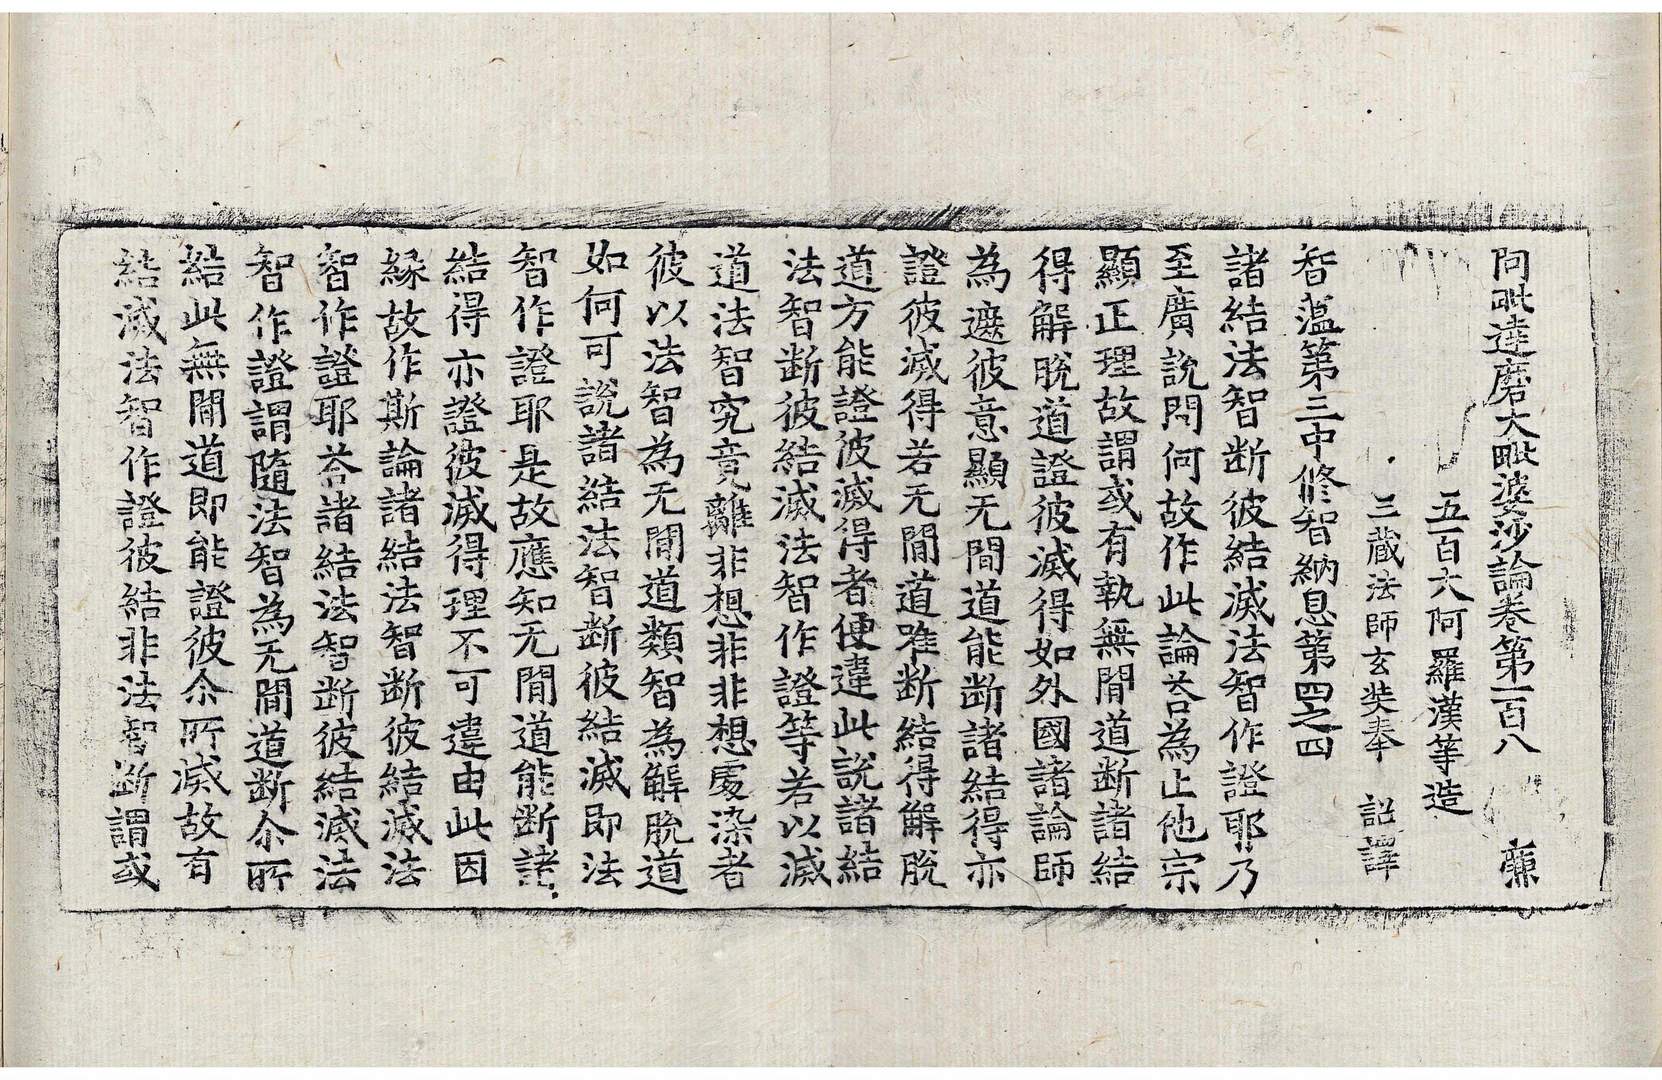 阿毗達磨大毗婆沙論卷第一百八 廉
五百大阿羅漢等造
三藏法師玄奘奉 詔譯
智蘊第三中修智納息第四之四
諸結法智断彼結滅法智作證耶乃
至廣說問何故作此論荅為止他宗
顯正理故謂或有執無閒道断諸結
得解脫道證彼滅得如外國諸論師
為遮彼意顯无閒道能断諸結得亦
證彼滅得若无閒道唯断結得解脫
道方能證彼滅得者便違此說諸結
法智断彼結滅法智作證等若以滅
道法智究竟離非想非非想處染者
彼以法智為无閒道類智為解脫道
如何可說諸結法智断彼結滅即法
智作證耶是故應知无閒道能断諸
結得亦證彼滅得理不可違由此因
緣故作斯論諸結法智断彼結滅法
智作證耶荅諸結法智断彼結滅法
智作證謂隨法智為无閒道断尒所
結此無閒道即能證彼尒所滅故有
結滅法智作證彼結非法智断謂或